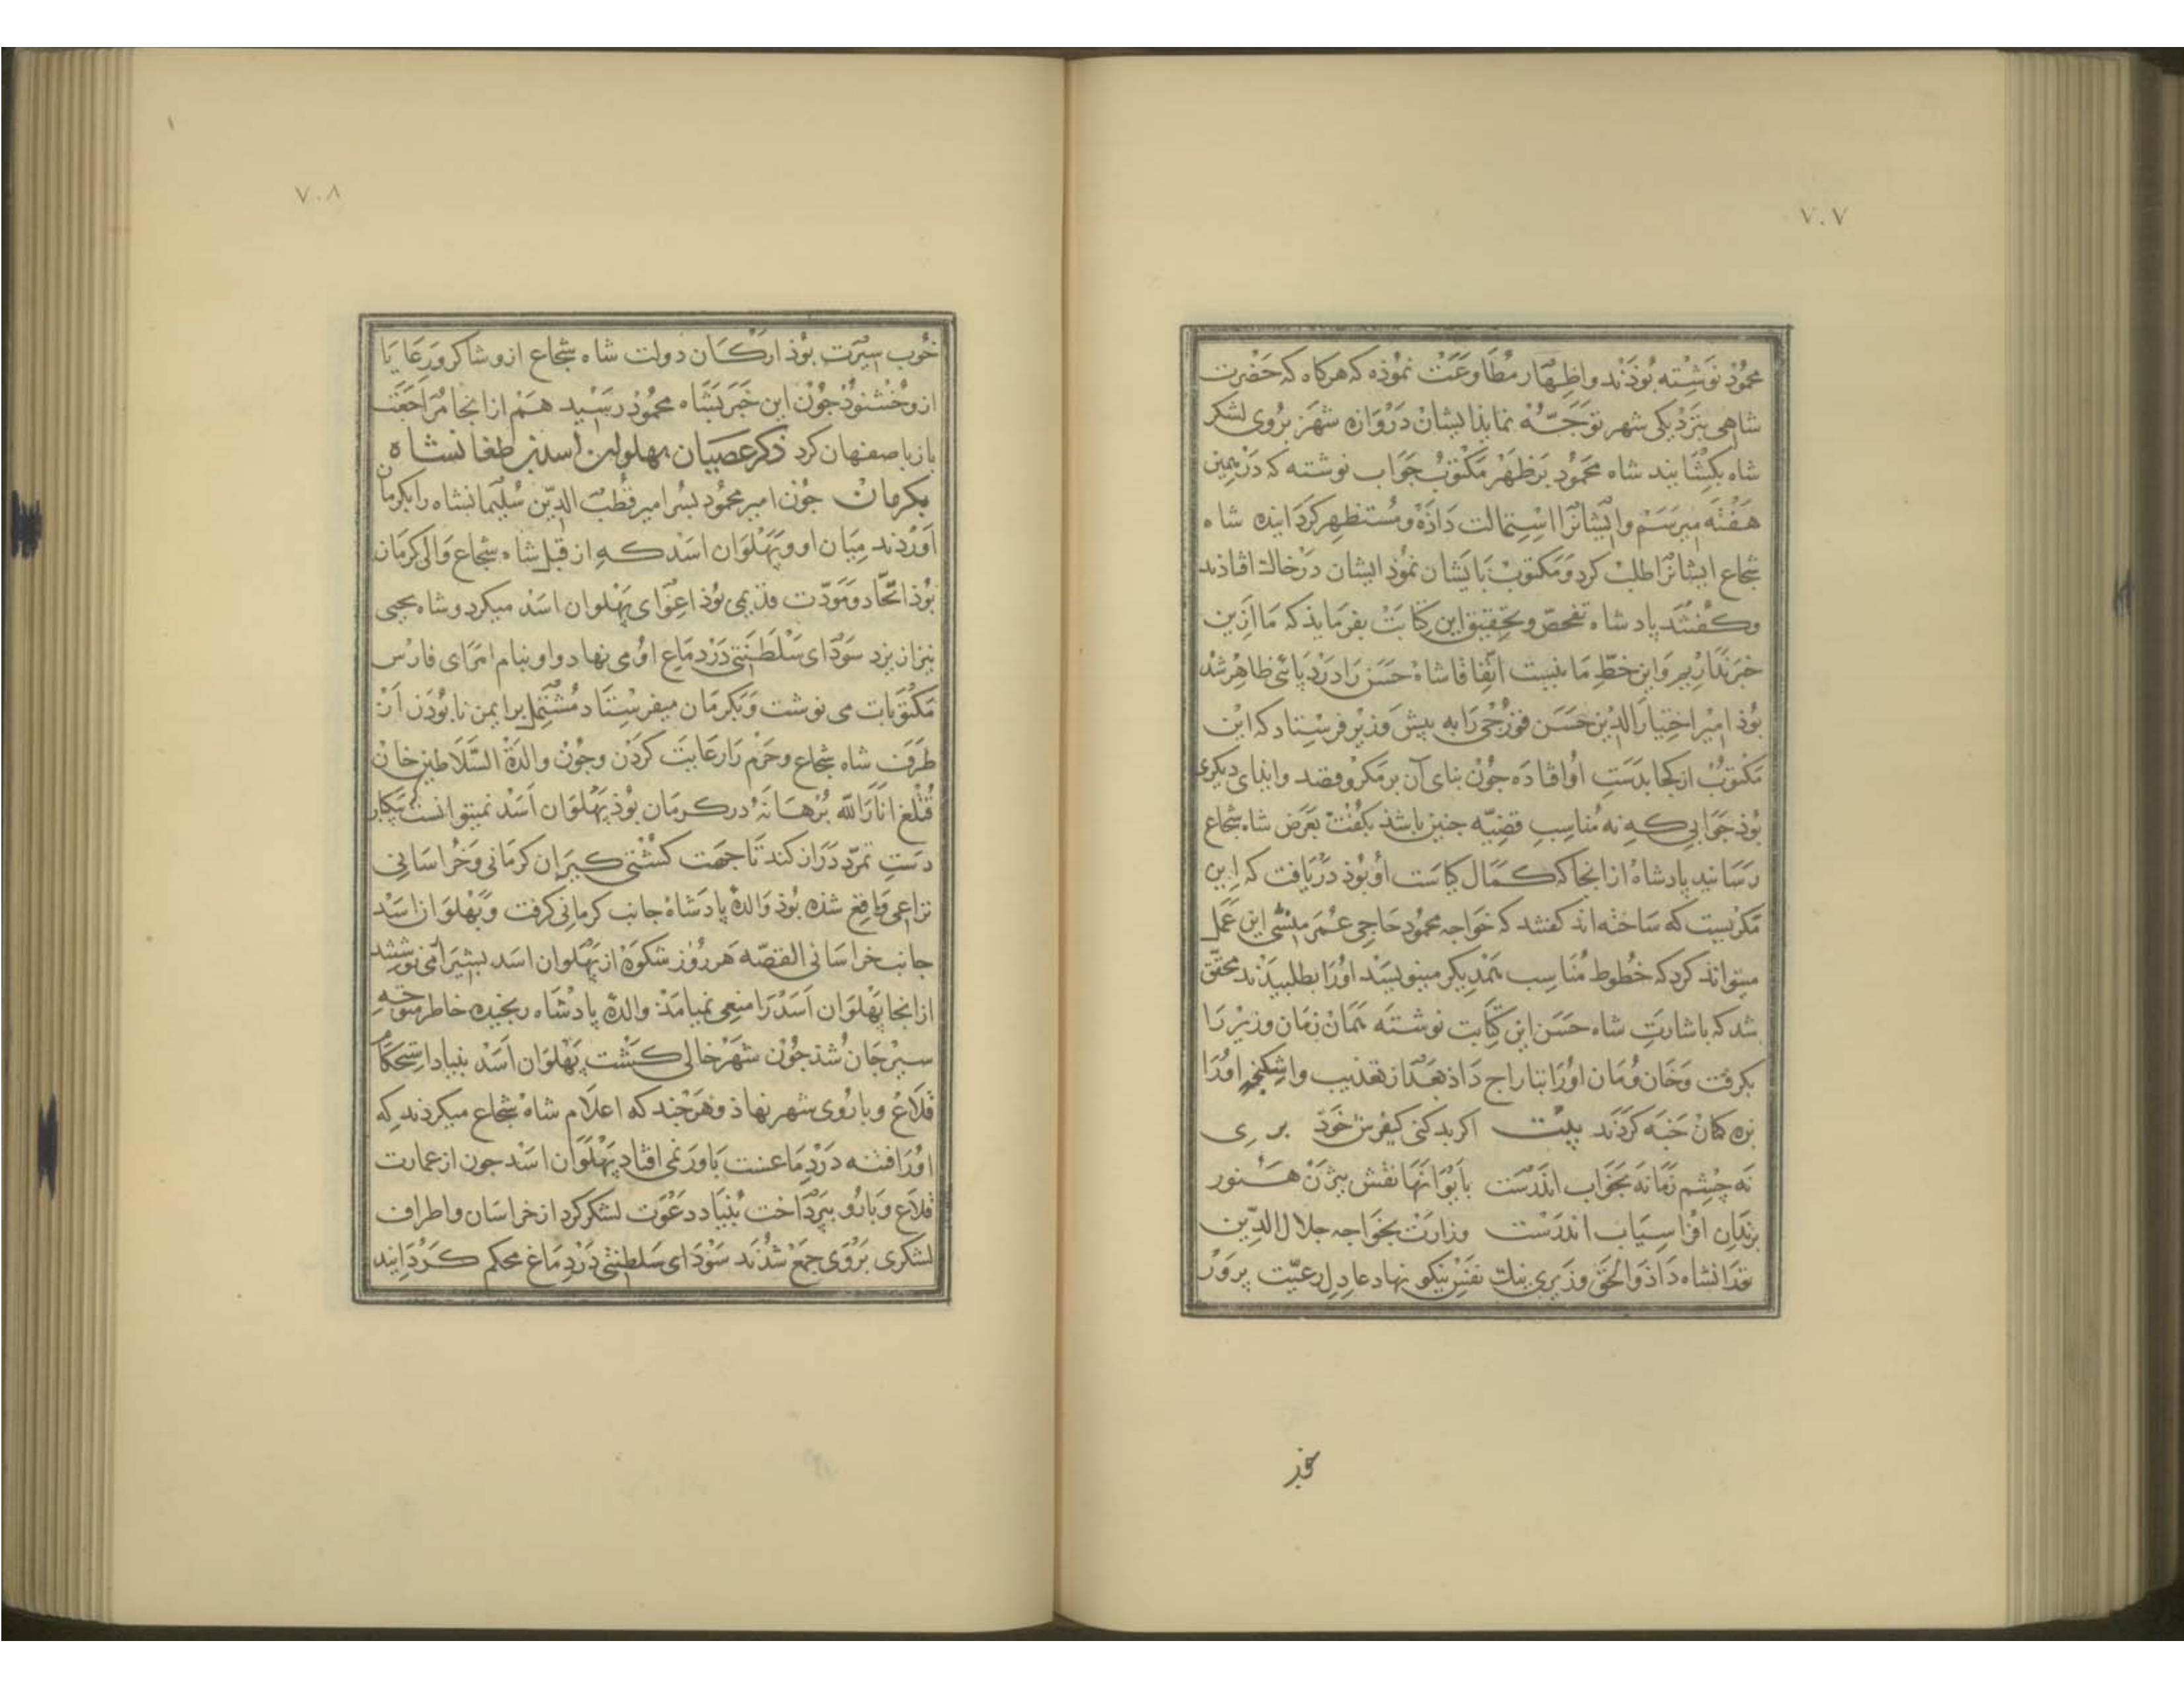 ۷۰۷
محمُوُدْ نَوشِتْه بُوذَنْد واظِهَار مُطَاوَعَتْ نموُذه كه هركاه كه حَضْرت
شاهی بنَزْدیكی شهر تَوَجّهْ نمایذ ایشانْ دَرْوَازه شَهْر بَرُوی لشكر
شاه بكشَایند شاه محمُود بَر ظَهْر مَكْتوُبْ جَوَاب نوشته كه دَرْ همین
هَفْتَه میرسَم وایشَانْرا اسْتِمالت دَاذَهْ ومُستظهر كردَاینده شاه
شجاع ایشانْرَا طلبْ كرد وَمَكتوبْ بَایشَان نموُذ ایشان دَرْ خالة افاذند
وكفْتَنْد پادشاه تفحصّ وتحقیق این كِتَابَتْ بفرمایذ كه مَا اَزین
خبر نَدَاریم وَاین خطّ ما نیست اتّفاقا شاه حَسَن رَا دَرْد پائی ظاهِرْ شد
بُوذ امیر اخِتیارَ الدّین حَسَن قورْجی رَا به پیش وَزیْر فرسْتاد كه این
مَكْتوُبْ از كجا بدَسَتِ اوُ افتاده جوُنْ بنای آن بر مكر وقصْد وایذای دیكری
بوُذ جَوَابی كه نه مُناسِبِ قضِیّه جنین باشذ بكفْت بعَرَض شاه شجاع
رسَانید پادشاه از انجا كه كمَال كیاسَت اوُ بُوذ دَرْیَافت كه این
مَكریست كه سَاخته اند كفتند كه خوَاجه محمُود حَاجی عُمَر منْشی این عَمَل
میتوانذ كرد كه خطُوط مُنَاسِب همْدیكر مینویسَد اورَا بطلبیدَنْد محقّق
شد كه باشارتِ شاه حَسَن این كِتَابت نوشتَه همَانْ زمَان وزیْر رَا
بكرفْت وَخَان وُمَان اوُرَا بتاراج دَاذ بَعْد از تعذیب واشِكنجه اوُرَا
بزه كمَانْ خَبَه كَرْدَنْد بیْت اكر بد كنی كیفرش خَوذ بری
نَه چشِم زَمَانَه بخَوَاب انْدرَسْت بَاَیْوَانهَا نَقْش بیژَنْ هَنوُر
بزنْدَان افْرَاسِیَاب اندرَسْت وزارَتْ بخوَاجه جلال الدّین
تورَانشاه دَاذ وَالحَقّ وزیری نیك نفس نیكو نهاد عادِل رعیّت پرورْ
خوب
۷۰۸
خوُب سِیْرَت بُوذ اركَان دولت شاه شجاع ازو شاكر ورَعَایا
ازو خُشنوُد جوُن این خَبَر بَشَاه محموُد رسَیْد هَمْ از انجا مُرَاجَعَت
باز باصفهان كرد ذكر عصیان پهلوان اسد بن طغانشاه
بكرمان جوُن امیر محموُد پسَر امیر قطْبُ الدّین سُلیْمانشاه را بكرمان
آوَرْدند میَان او وپَهْلَوَان اسَد كه از قبل شاه شجاع وَالی كرمَان
بُوذ اتّحَاد وَمَوَدّت قدیمی بُوذ اغِوَای پهْلوان اسَد میكرد وشاه یحیی
نیز از یزد سَوْدای سَلْطنَتی دَرْ دمَاغ اوُ می نهاد واو بنام امَرَای فارْس
مَكتوُبات می نوشت وَبكرْمَان میفرسْتَاد مُشْتمل بر ایمن نا بُودَنِ اَنْ
طرَفْ شاه شجاع وحَزْم رَا رعَایَت كَرْدَن وجوُن والدَة السّلاَطین خان
قُتْلُغ انَارَ الله بُرهَانَهُ در كرمان بُوذ پَهْلوَان اَسَدْ نمیتوانست بیكبار
دسَتِ تمرّد دَرَاز كند تا جهَت كشتی كیَران كرمانی وَخُراسَانی
نزاعی وَاقِع شذه بُوذ وَالدهْ پادشَاه جانب كرمانی كرفْت وَپهْلوَان اسَد
جانب خراسانی القصّه هَر رُوز شكوَهْ از پَهْلوان اسَد بشیرَاز می نوشتند
از انجا پَهْلوَان اَسَدْ رَا منعی نمیامَدْ والده پادْشَاه رنجیده خاطر متوجّه
سیرْجَان شُذ جوُن شَهَر خالی كشْت پَهْلوَان اَسَد بنیاد استحكام
قلاَع وبارُوی شهر نهاذ وهَرْ چند كه اعلاَم شاه شجاع میكردند كه
اوُرَا فتنه دَرْ دماغست بَاورَ نمی افتاد پَهْلَوَان اسَد جون از عمَارت
قلاَع وبَارُو بپرْدَاخت بُنیَاد دعْوَت لشكر كرد از خراسَان واطراف
لشكری بَرْوَی جمَعْ شُدْنَد سَوْدَای سَلطنتی دَرْ دِمَاغ محكم كَردَانید